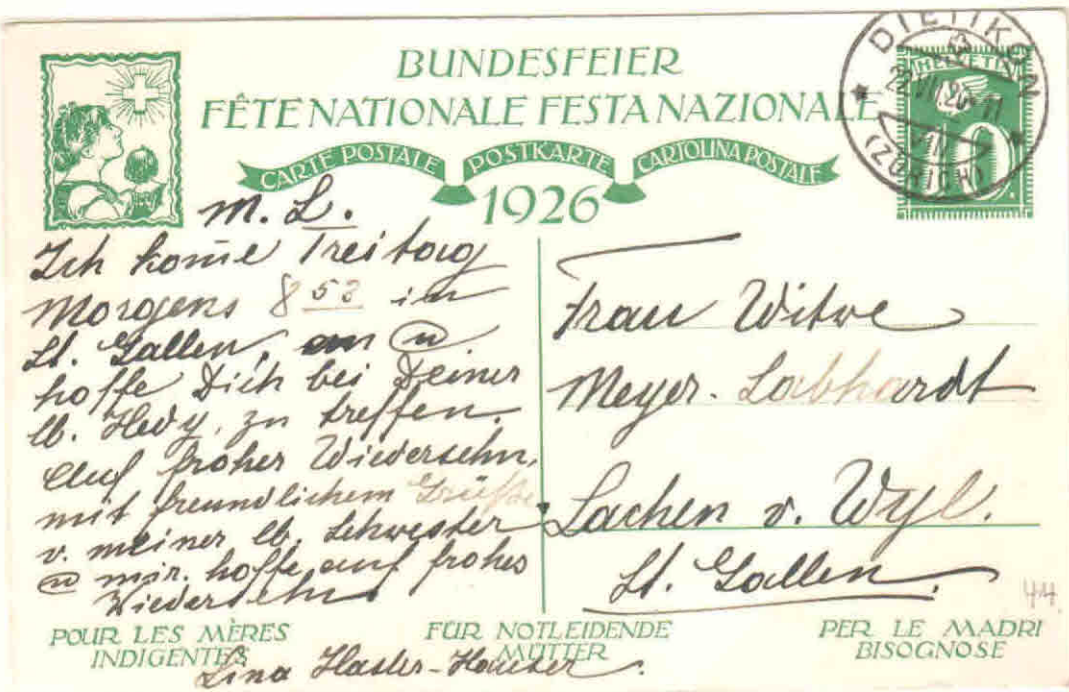 BUNDESFEIER
FÊTE NATIONALE FESTA NAZIONALE
CARTE POSTALE POSTKARTE CARTOLINA POSTALE
1926
DIETIKON
(ZÜRICH)
HELVETIA
M. L.
Ich kom̄e Freitag
Morgens 8 53 in
St. Gallen, an u
hoffe Dich bei Deiner
lb. Hedy, zu treffen.
Auf froher Wiedersehn,
mit freundlichem Grüsse
v. meiner lb. Schwester
u mir. hoffe auf frohes
Wiedersehn
Lina Hasler-Hauser.
Frau Witwe
Meyer-Labhardt
Lachen v. Wyl.
St. Gallen.
44
POUR LES MÈRES
INDIGENTES
FÜR NOTLEIDENDE
MÜTTER
PER LE MADRI
BISOGNOSE